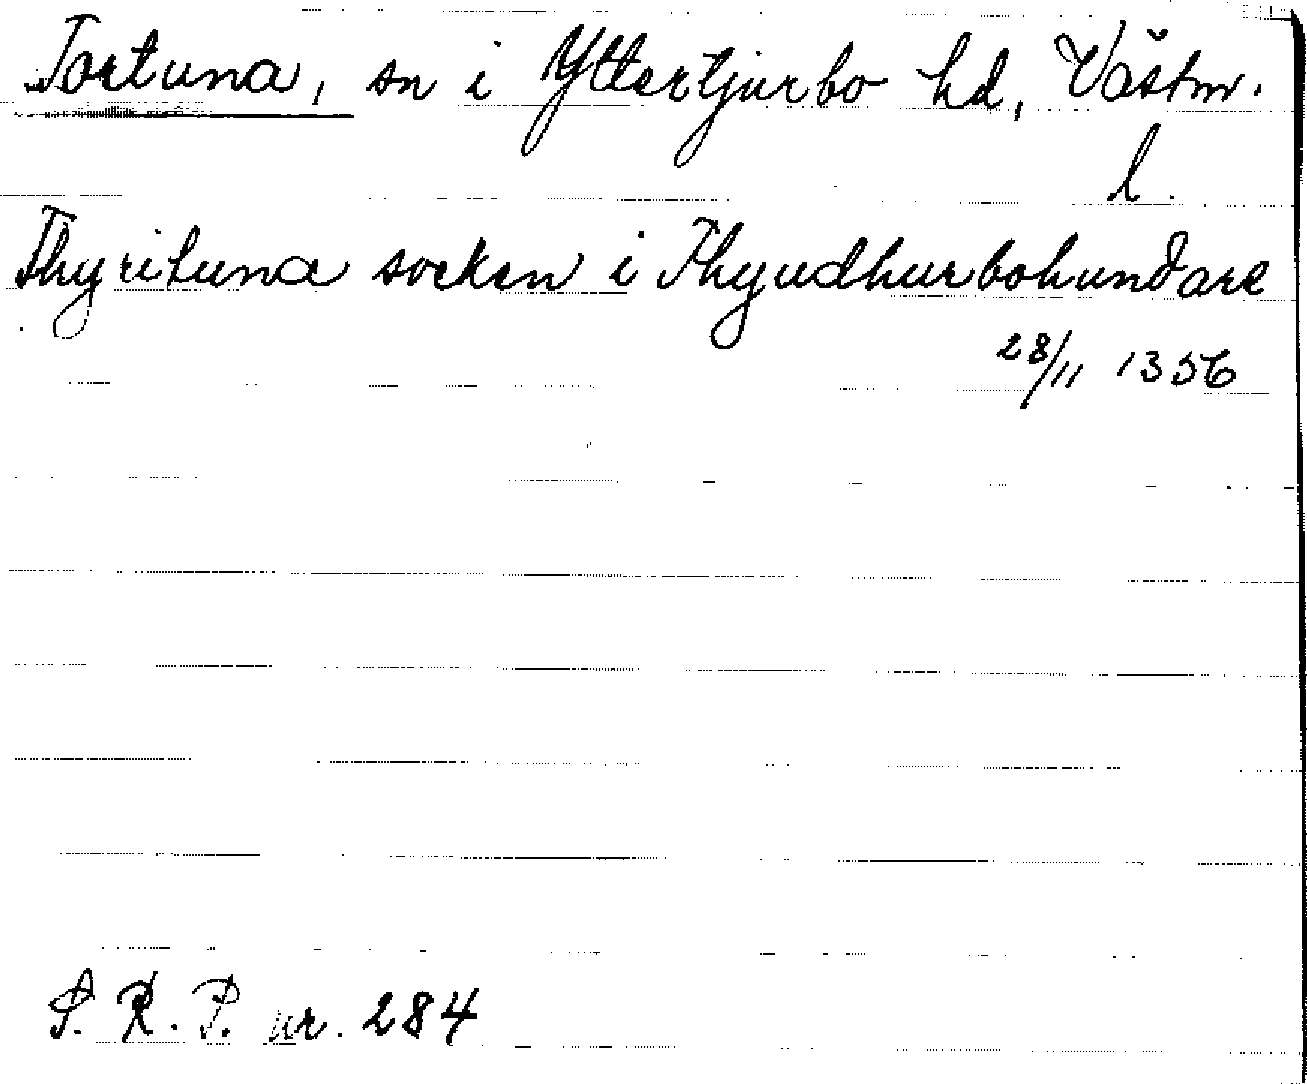 Tortuna, sn i Yttertjurbo hd, Västm.
l.
Thyrituna socken i Thyudhurbohundare
28/11 1356
S. R. P. nr. 284